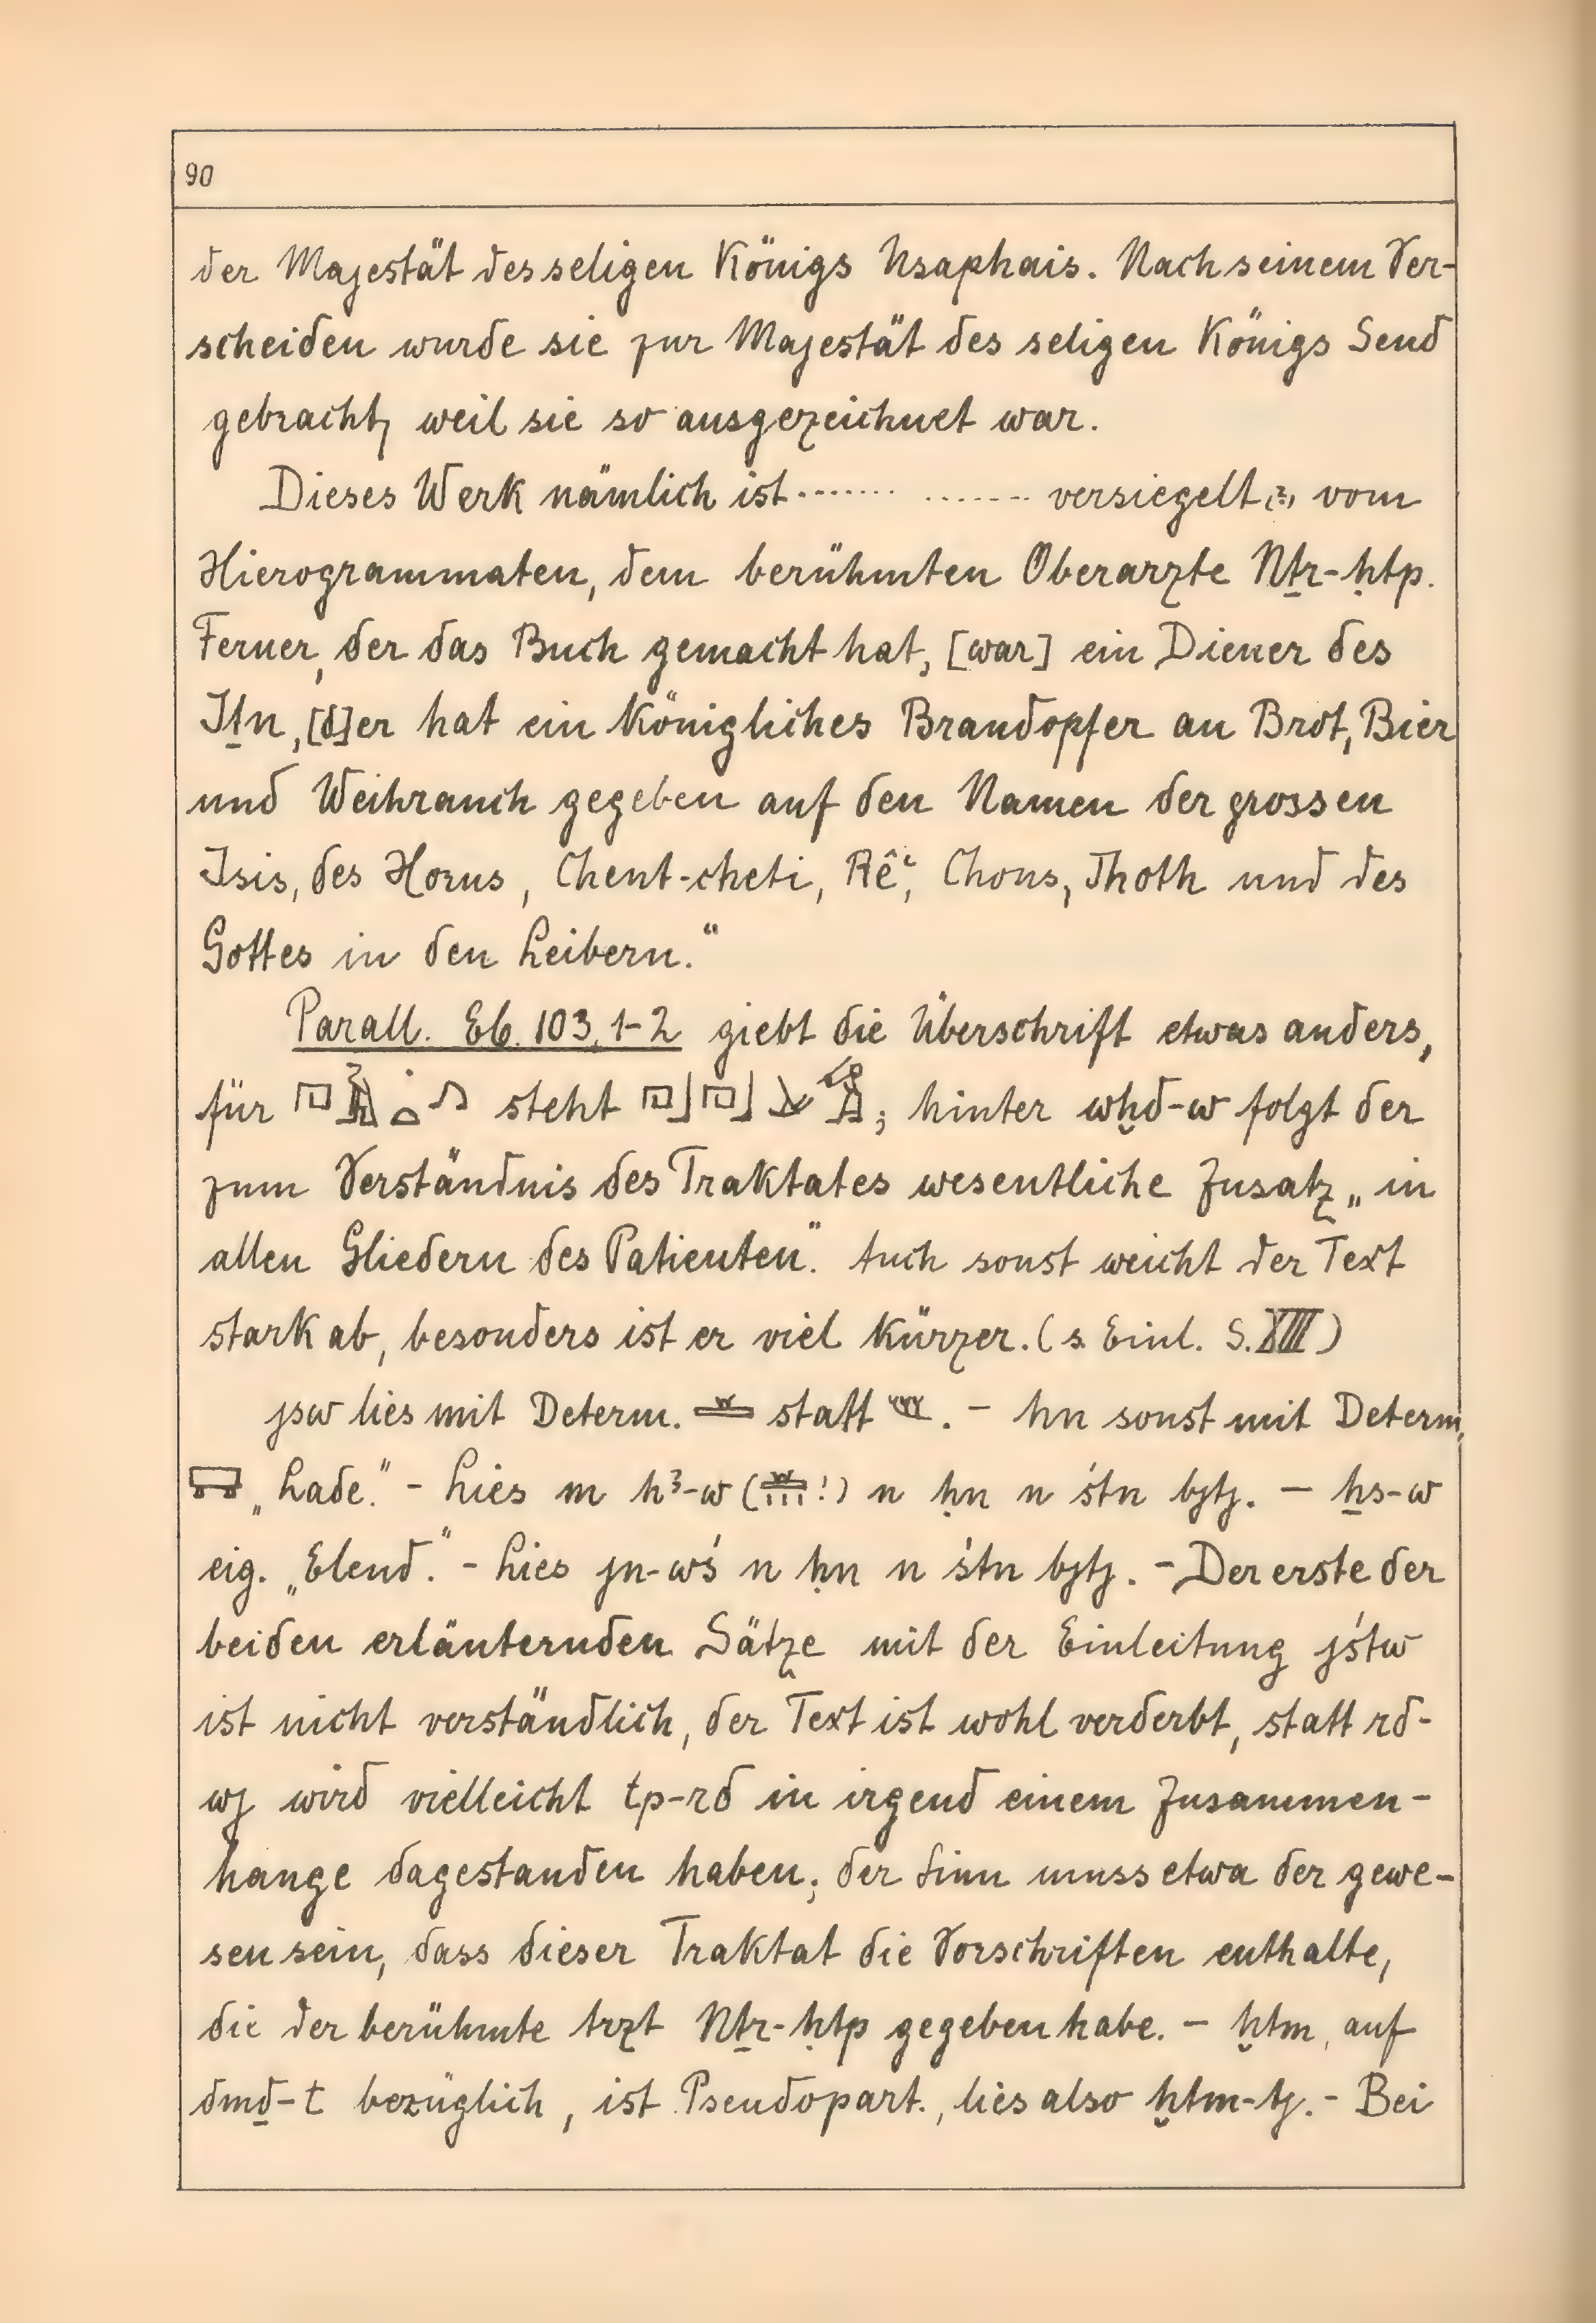 90
der Majestät des seligen Königs Usaphais. Nach seinem Ver-
scheiden wurde sie zur Majestät des seligen Königs Send
gebracht, weil sie so ausgezeichnet war.
Dieses Werk nämlich ist ....... ....... versiegelt(?) vom
Hierogrammaten, dem berühmten Oberarzte Nṯr-ḥtp.
Ferner, der das Buch gemacht hat, [war] ein Diener des
Jṯn, [d]er hat ein königliches Brandopfer an Brot, Bier
und Weihrauch gegeben auf den Namen der grossen
Isis, des Horus, Chent-cheti, Rêʿ, Chons, Thoth und des
Gottes in den Leibern.“
Parall. Eb. 103, 1-2 giebt die Überschrift etwas anders,
für steht ; hinter wḫd-w folgt der
zum Verständnis des Traktates wesentliche Zusatz „in
allen Gliedern des Patienten“. Auch sonst weicht der Text
stark ab, besonders ist er viel kürzer. (s. Einl. S. XIII)
jsw lies mit Determ. statt . - hn sonst mit Determ.
„Lade.“ - Lies m h3-w ( !) n ḥn n śtn bjtj. - ẖs-w
eig. „Elend.“ - Lies jn-wś n ḥn n śtn bjtj. - Der erste der
beiden erläuternden Sätze mit der Einleitung jśtw
ist nicht verständlich, der Text ist wohl verderbt, statt rd-
wj wird vielleicht tp-rd in irgend einem Zusammen-
hange dagestanden haben; der Sinn muss etwa der gewe-
sen sein, dass dieser Traktat die Vorschriften enthalte,
die der berühmte Arzt Nṯr-ḥtp gegeben habe. - ḫtm, auf
dmḏ-t bezüglich, ist Pseudopart., lies also ḫtm-tj. - Bei